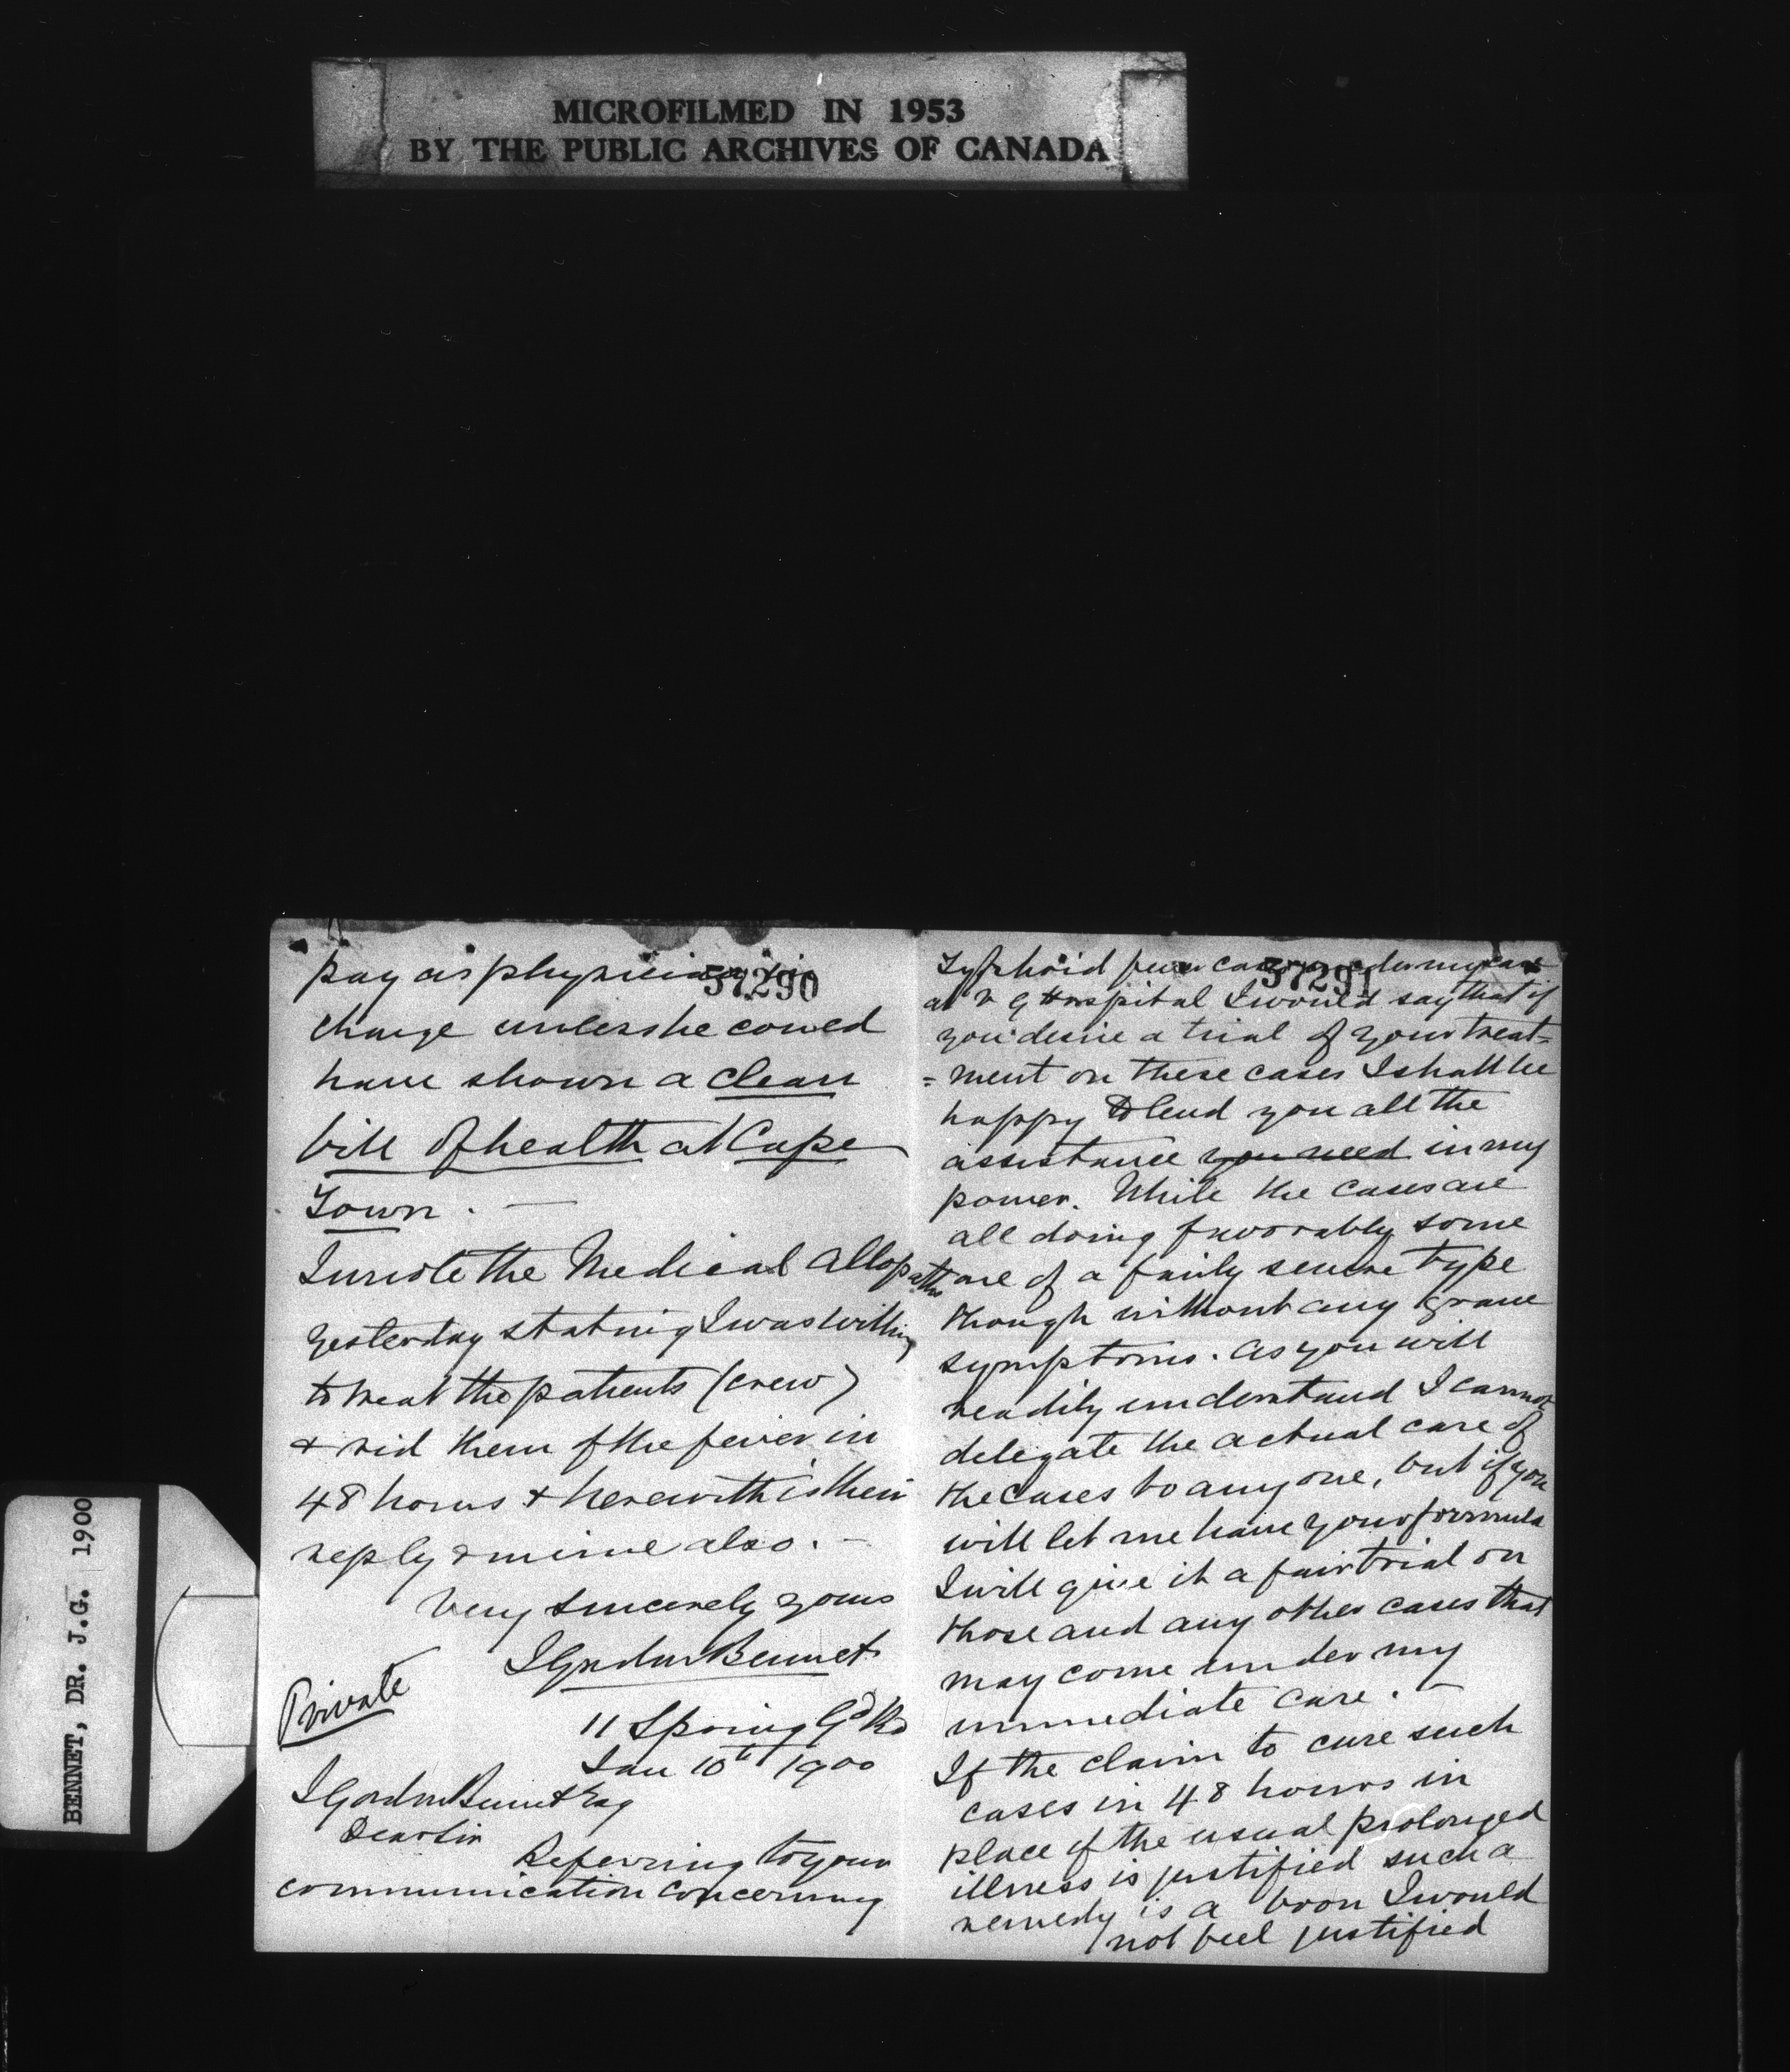 MICROFILMED IN 1953
BY THE PUBLIC ARCHIVES OF CANADA
BENNET, DR. J.G. 1900
57290
pay as physician
charge unless he could
have shown a clean
bill of health at Cape
Town. —
I wrote the Medical Allopaths
yesterday stating I was willing
to treat the patients (crew)
& rid them of the fever in
48 hours & herewith is their
reply & mine also. —
Very sincerely yours
J Gordon Bennet
Private
11 Spring Gd Rd
Jan 10th 1900
J Gordon Bennet Esq
Dear Sir
Referring to your
communication concerning
57291
Typhoid fever cases under my care
at V G Hospital I would say that if
you desire a trial of your treat=
=ment on these cases I shall be
happy to lend you all the
assistance you need in my
power. While the cases are
all doing favorably some
are of a fairly severe type
though without any grave
symptoms. As you will
readily understand I cannot
delegate the actual care of
the cases to anyone, but if you
will let me have your formula
I will give it a fair trial on
those and any other cases that
may come under my
immediate care. —
If the claim to cure such
cases in 48 hours in
place of the usual prolonged
illness is justified such a
remedy is a boon I would
not feel justified